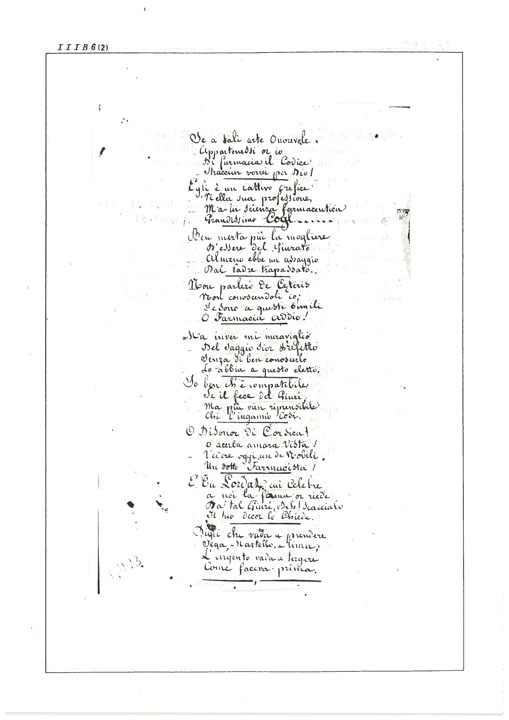 IIIB6(2)
Se a tali arte Onorevole.
Appartenessi or io
Di farmacia il Codice
Stracciar vorrei per Dio!
Egli è un cattivo orefice
Nella sua professione,
Ma in scienza farmaceutica
Grandissimo Cogl......
Ben merta più la mogliere
D'essere del Giurato
Almeno ebbe un assaggio
Dal Padre trapassato..
Non parlerò De Ceteris
Non conoscendoli io;
Se sono a questi simili
O Farmacia addio!
Ma inver mi maraviglio
Del saggio Sior Prefetto
Senza di ben conoscerlo
Lo abbia a questo eletto.
Io ben ch'è compatibile
Se il fece del Giurì,
Ma più vien riprensibile
Chi l'ingannò Così.
O Disonor Di Corsica!
O acerba amara Vista!
Vedere oggi un de Nobili.
Un dotto Farmacista!
E Tu Lordat cui Celebre
a noi la fama or riede
Da tal Giurì, Deh! scacciato
Il tuo decor lo Chiede.
Digli che vada a prendere
Sega, Martello, Lima,
L'argento vada a tergere
Come faceva prima.